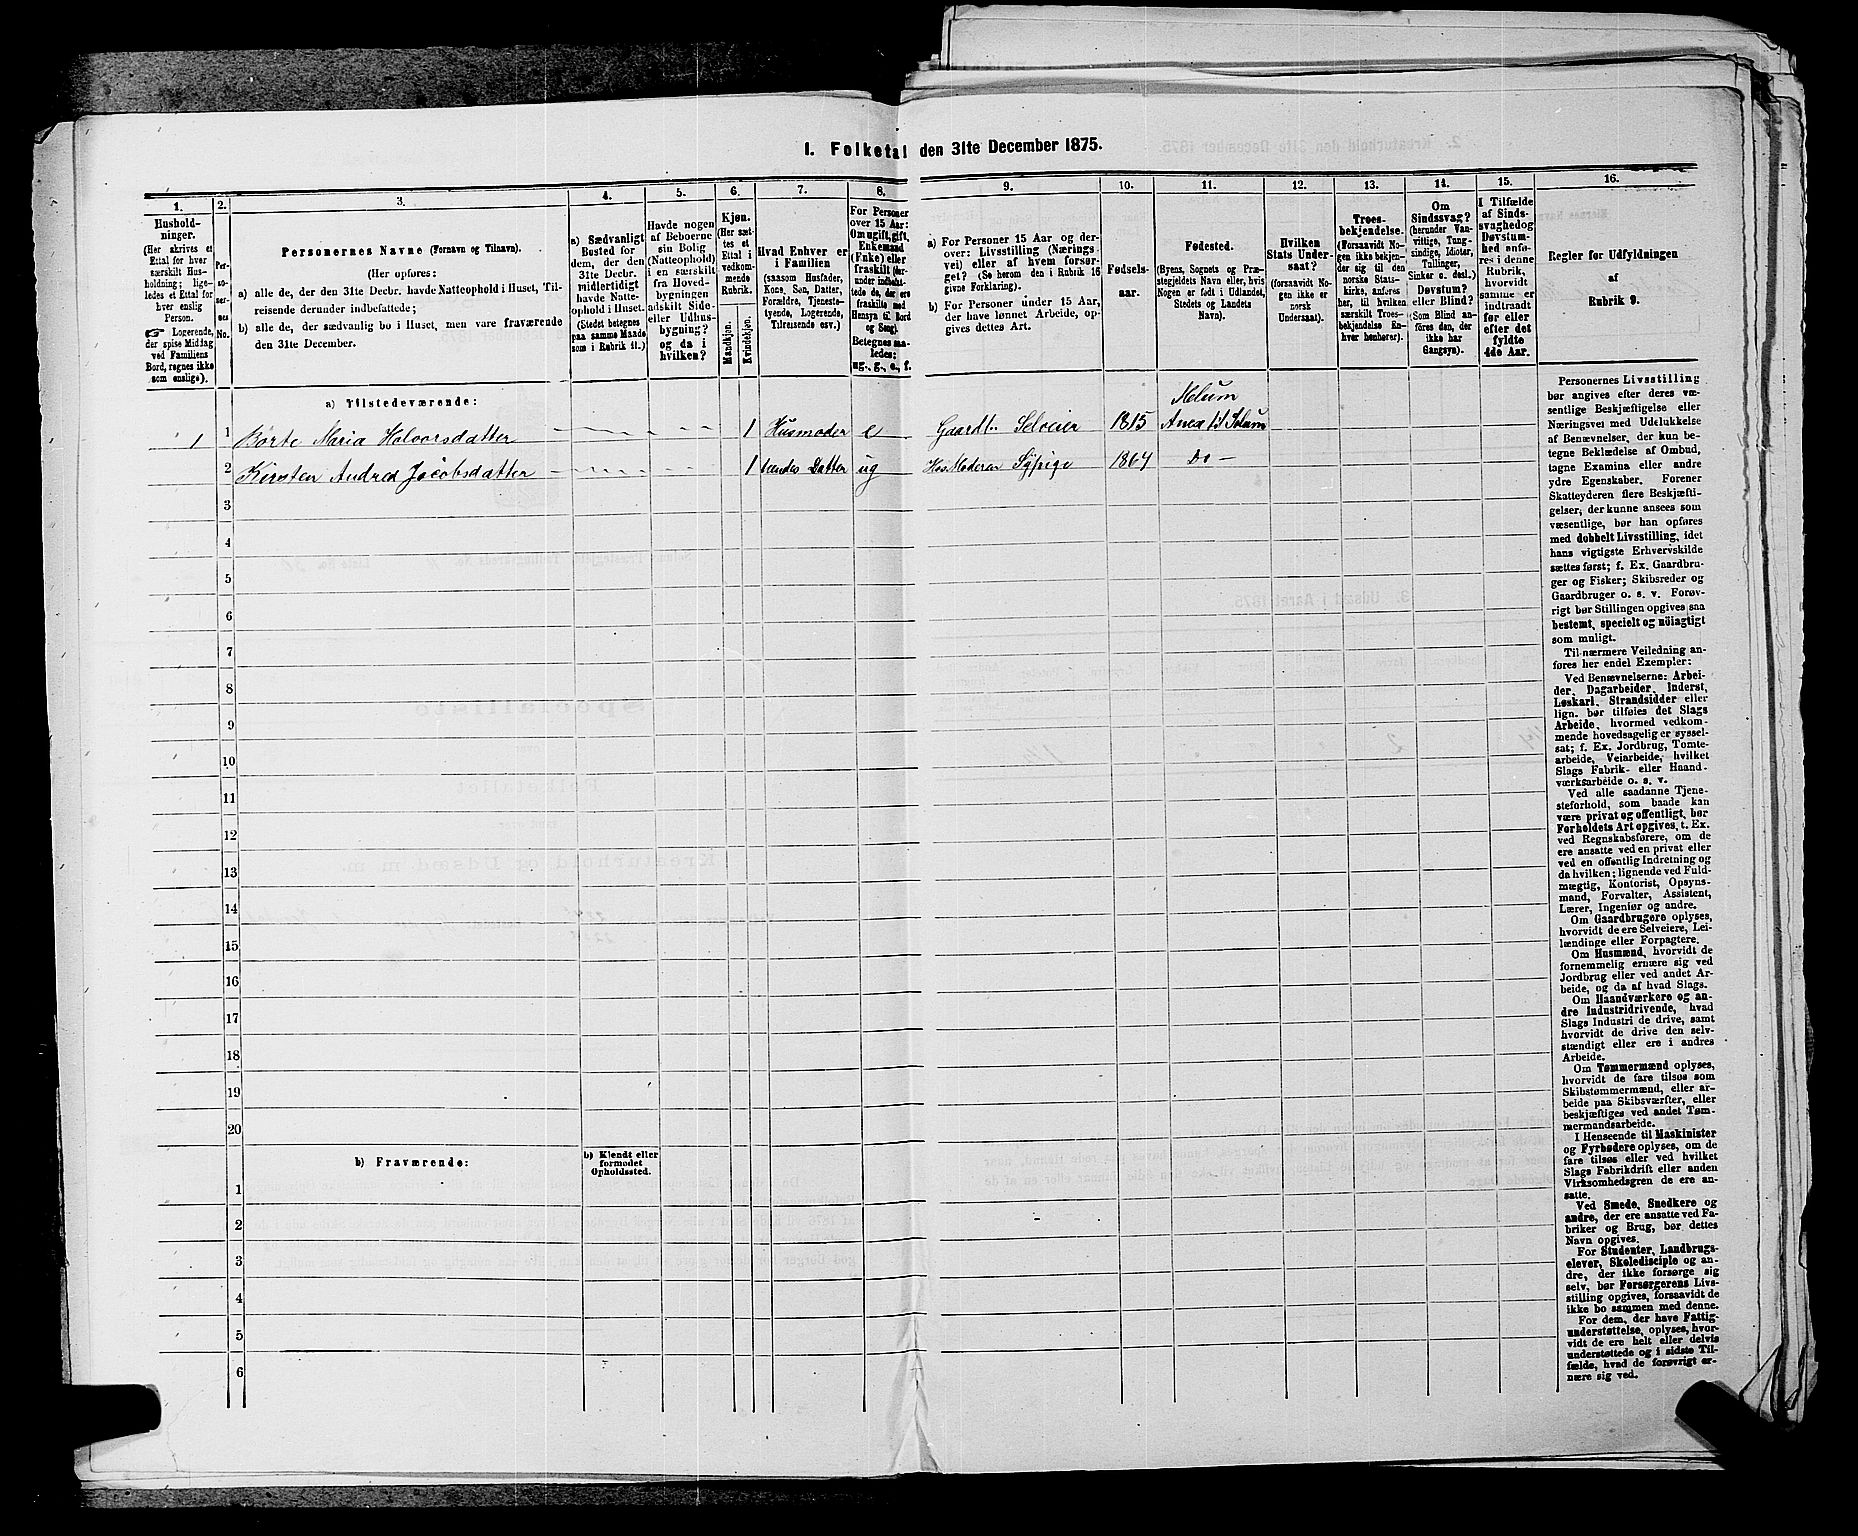 1. Folketal den 31te December 1875.
1.
Hushold-
ninger.
(Her skrives et
Ettal for hver
særskilt Hus-
holdning; lige-
ledes et Ettal for
hver enslig
Person.
Logerende,
der spise Middag
ved Familiens
Bord, regnes ikke
som enslige).
2.
Per-
so-
ner-
nes
No.
3.
Personernes Navne (Fornavn og Tilnavn).
(Her opføres:
a) alle de, der den 31te Decbr. havde Natteophold i Huset, Til-
reisende derunder indbefattede;
b) alle de, der sædvanlig bo i Huset, men vare fraværende
den 31te December.
4.
a) Sædvanligt
Bosted for
dem, der den
31te Decbr.
midlertidigt
havde Natte-
ophold i Huset.
(Stedet betegnes
paa samme Maade
som i Rubrik 11.)
5.
Havde nogen
af Beboerne
sin Bolig
(Natteophold)
i en særskilt
fra Hoved-
bygningen
adskilt Side-
eller Udhus-
bygning?
og da i
hvilken?
6.
Kjøn.
(Her sæt-
tes et
Ettal i
vedkom-
mende
Rubrik.
Mandkjøn.
Kvindekjøn.
7.
Hvad Enhver er
i Familien
(saasom Husfader,
Kone, Søn, Datter,
Forældre, Tjeneste-
tyende, Logerende,
Tilreisende osv.)
8.
For Personer
over 15 Aar:
Om ugift, gift,
Enkemand
(Enke) eller
fraskilt (her-
under indbefat-
tede de, der ere
fraskilte med
Hensyn til Bord
og Seng).
Betegnes saa-
ledes:
ug., g., e., f.
9.
a) For Personer 15 Aar og der-
over: Livsstilling (Nærings-
vei) eller af hvem forsør-
get? (Se herom den i Rubrik 16
givne Forklaring).
b) For Personer under 15 Aar,
der have lønnet Arbeide, op-
gives dettes Art.
10.
Fødsels-
aar.
11.
Fødested.
(Byens, Sognets og Præ-
stegjeldets Navn eller, hvis
Nogen er født i Udlandet,
Stedets og Landets
Navn).
12.
Hvilken
Stats Under-
saat?
(forsaavidt No-
gen ikke er
norsk
Undersaat).
13.
Troes-
bekjendelse.
(Forsaavidt No-
gen ikke bekjen-
der sig til den
norske Stats-
kirke, anføres
her, til hvilken
særskilt Troes-
bekjendelse En-
hver henhører).
14.
Om
Sindssvag?
(herunder Van-
vittige, Tung-
sindige, Idioter,
Tullinger,
Sinker o. desl.)
Døvstum?
eller Blind?
(Som Blind an-
føres den, der
ikke har
Gangsyn).
15.
I Tilfælde
af Sinds-
svaghed og
Døvstum-
hed anfø-
res i denne
Rubrik,
hvorvidt
samme er
indtraadt
før eller
efter det
fyldte
4de Aar.
16.
Regler for Udfyldningen
af
Rubrik 9.
a) Tilstedeværende:
1 1 Børte Maria Halvorsdatter 1 Husmoder e Gaardb. Selveier 1815 Melum Anex til Solum
2 Kirsten Andrea Jacobsdatter 1 hendes Datter ug Hos Moderen Sypige 1864 Do
3
4
5
6
7
8
9
10
11
12
13
14
15
16
17
18
19
20
b) Fraværende:
b) Kjendt eller
formodet
Opholdssted.
1
2
3
4
5
6
Personernes Livsstilling
bør angives efter deres væ-
sentlige Beskjæftigelse eller
Næringsvei med Udelukkelse
af Benævnelser, der kun be-
tegne Beklædelse af Ombud,
tagne Examina eller andre
ydre Egenskaber. Forener
Skatteyderen flere Beskjæfti-
gelser, der kunne ansees som
væsentlige, bør han opføres
med dobbelt Livsstilling, idet
hans vigtigste Erhvervskilde
sættes først; f. Ex. Gaardbru-
ger og Fisker; Skibsreder og
Gaardbruger o. s. v. Forøv-
rigt bør Stillingen opgives saa
bestemt, specielt og nöiagtigt
som muligt.
Til nærmere Veiledning an-
føres her endel Exempler:
Ved Benævnelserne: Arbei-
der, Dagarbeider, Inderst,
Løskarl, Strandsidder eller
lign. bør tilføies det Slags
Arbeide, hvormed vedkom-
mende hovedsagelig er syssel-
sat; f. Ex. Jordbrug, Tomte-
arbeide, Veiarbeide, hvilket
Slags Fabrik- eller Haand-
værksarbeide o. s. v.
Ved alle saadanne Tjene-
steforhold, som baade kan
være privat og offentligt, bør
Forholdets Art opgives, t. Ex.
ved Regnskabsførere, om de
ere ansatte ved en privat eller
ved en offentlig Indretning og
da hvilken; lignende ved Fuld-
mægtig, Kontorist, Opsyns-
mand, Forvalter, Assistent,
Lærer, Ingeniør og andre.
Om Gaardbrugere oplyses,
hvorvidt de ere Selveiere, Lei-
lændinge eller Forpagtere.
Om Husmænd, hvorvidt de
fornemmelig ernære sig ved
Jordbrug eller ved andet Ar-
beide, og da af hvad Slags.
Om Haandværkere og an-
dre Industridrivende, hvad
Slags Industri de drive, samt
hvorvidt de drive den selv-
stændigt eller ere i andres
Arbeide.
Om Tømmermænd oplyses,
hvorvidt de fare tilsøs som
Skibstømmermænd, eller ar-
beide paa Skibsværfter, eller
beskjæftiges ved andet Tøm-
mermandsarbeide.
I Henseende til Maskinister
og Fyrbødere oplyses, om de
fare tilsøs eller ved hvilket
Slags Fabrikdrift eller anden
Virksomhedsgren de ere an-
satte.
Ved Smede, Snedkere og
andre, der ere ansatte ved Fa-
briker og Brug, bør dettes
Navn opgives.
For Studenter, Landbrugs-
elever, Skoledisciple og an-
dre, der ikke forsørge sig
selv, bør Forsørgerens Livs-
stilling opgives, forsaavidt de
ikke bo sammen med denne.
For dem, der have Fattig-
understøttelse, oplyses, hvor-
vidt de ere helt eller delvis
understøttede og i sidste Til-
fælde, hvad de forøvrigt er-
nære sig ved.